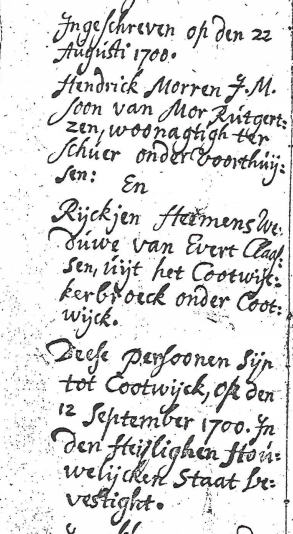 Ingeschreven op den 22
Augusti 1700.
Hendrick Morren J.M.
soon van Mor Rutgert-
zen, woonagtigh ter
schúer onder voorthúij:
sen:
En
Rijckjen Hermens We:
dúwe van Evert Claas:
sen, úijt het Cootwijc:
kerbroeck onder Coot:
wijck.
Deese persoonen sijn
tot Cootwijck, op den
12 September 1700. In
den Heijlighen Hoú:
welijcken Staat be:
vestight.